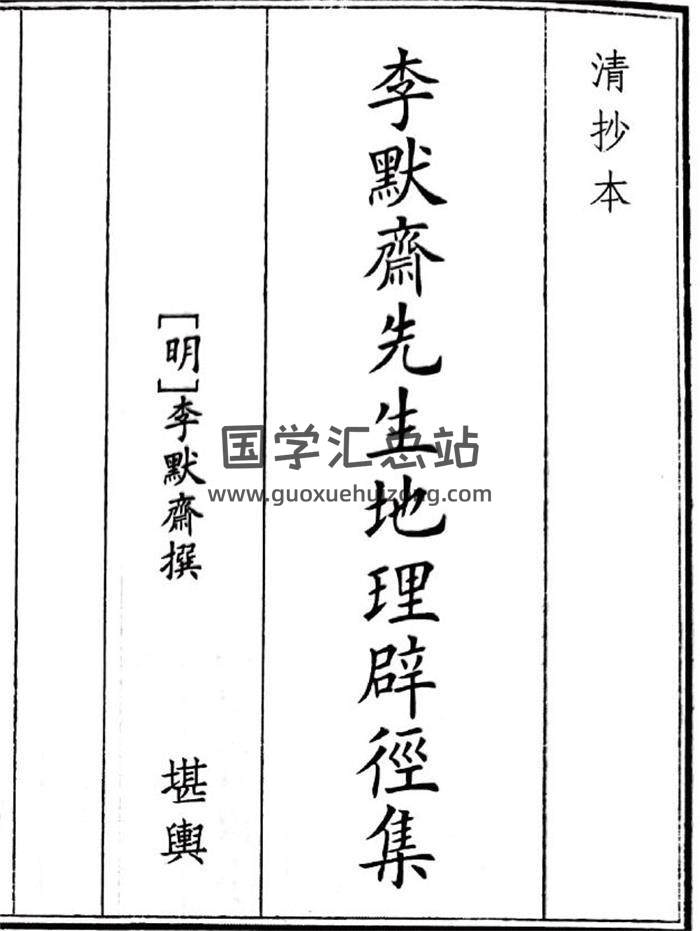 清抄本
李默齋先生地理辟徑集
[明]李默齋撰
堪輿
国学汇总站
www.guoxuehuizong.com